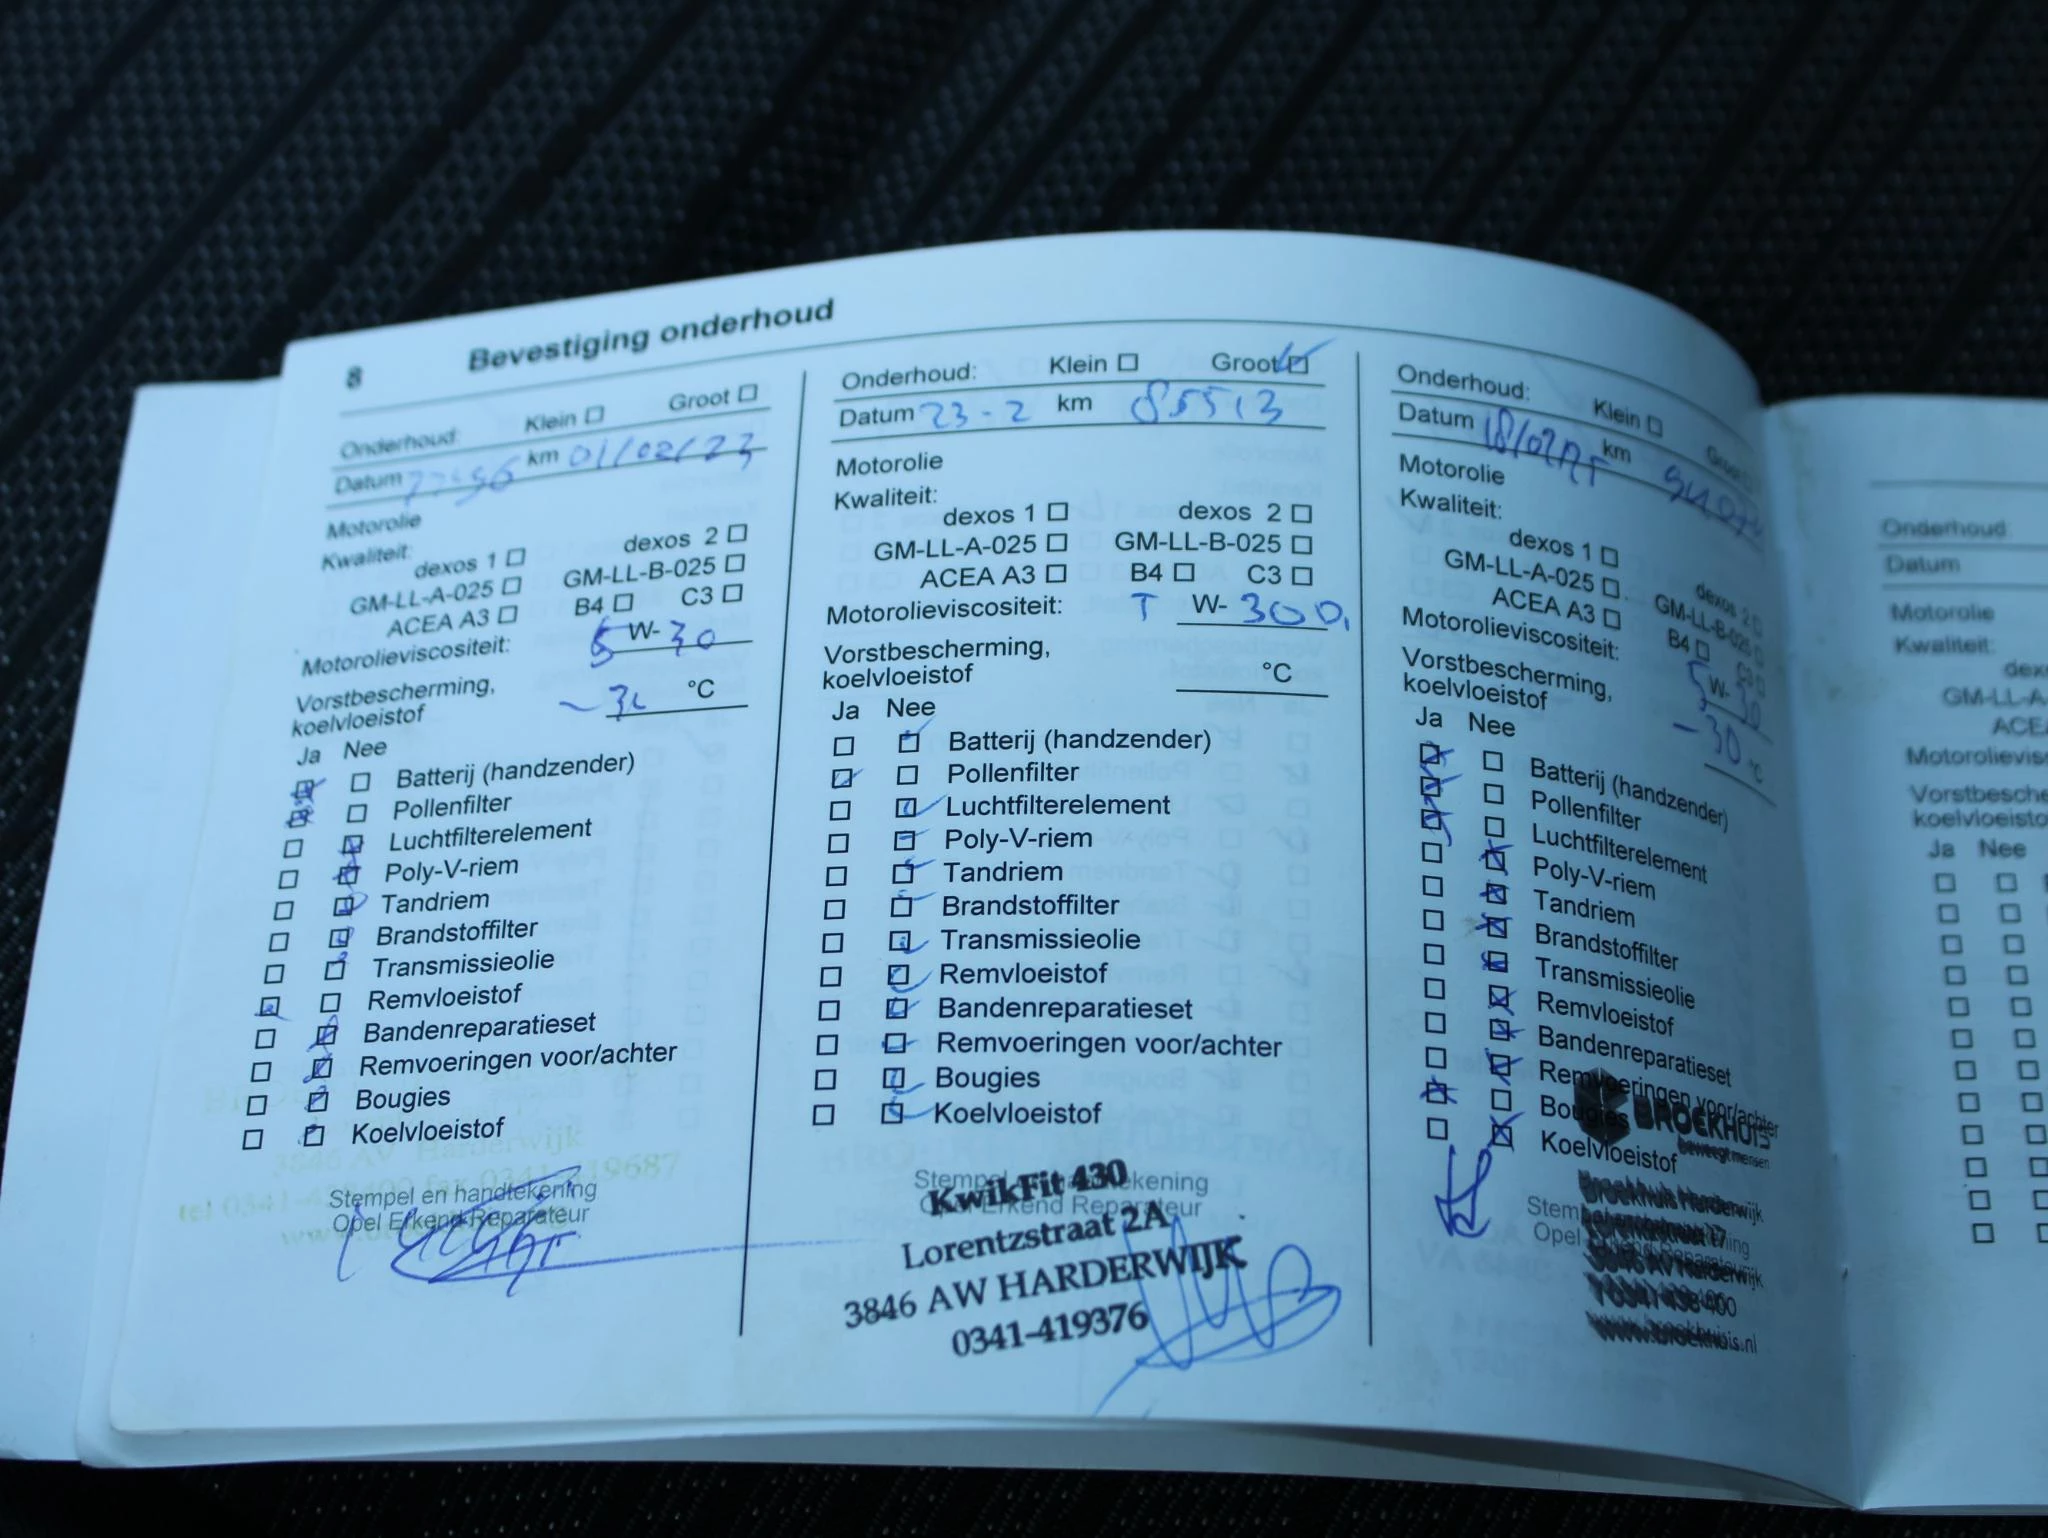 8 Bevestiging onderhoud
Onderhoud: Klein Groot
Datum km 01/02/23
Motorolie
Kwaliteit:
dexos 1 dexos 2
GM-LL-A-025 GM-LL-B-025
ACEA A3 B4 C3
Motorolieviscositeit: 5 W-30
Vorstbescherming,
koelvloeistof °C
Ja Nee
Batterij (handzender)
Pollenfilter
Luchtfilterelement
Poly-V-riem
Tandriem
Brandstoffilter
Transmissieolie
Remvloeistof
Bandenreparatieset
Remvoeringen voor/achter
Bougies
Koelvloeistof
3846 AV Harderwijk
Stempel en handtekening
Opel Erkend Reparateur
Onderhoud: Klein Groot
Datum 23-2 km 85513
Motorolie
Kwaliteit:
dexos 1 dexos 2
GM-LL-A-025 GM-LL-B-025
ACEA A3 B4 C3
Motorolieviscositeit: W-
Vorstbescherming,
koelvloeistof °C
Ja Nee
Batterij (handzender)
Pollenfilter
Luchtfilterelement
Poly-V-riem
Tandriem
Brandstoffilter
Transmissieolie
Remvloeistof
Bandenreparatieset
Remvoeringen voor/achter
Bougies
Koelvloeistof
Stempel en handtekening
Opel Erkend Reparateur
KwikFit 430
Lorentzstraat 2A
3846 AW HARDERWIJK
0341-419376
Onderhoud: Klein Groot
Datum km
Motorolie
Kwaliteit:
dexos 1 dexos 2
GM-LL-A-025 GM-LL-B-025
ACEA A3 B4 C3
Motorolieviscositeit: 5 W-30
Vorstbescherming,
koelvloeistof -30 °C
Ja Nee
Batterij (handzender)
Pollenfilter
Luchtfilterelement
Poly-V-riem
Tandriem
Brandstoffilter
Transmissieolie
Remvloeistof
Bandenreparatieset
Remvoeringen voor/achter
Bougies
Koelvloeistof
BROEKHUIS
beweegt mensen
Broekhuis Harderwijk
www.broekhuis.nl
Onderhoud:
Datum
Motorolie
Kwaliteit:
GM-LL-A-
Ja Nee